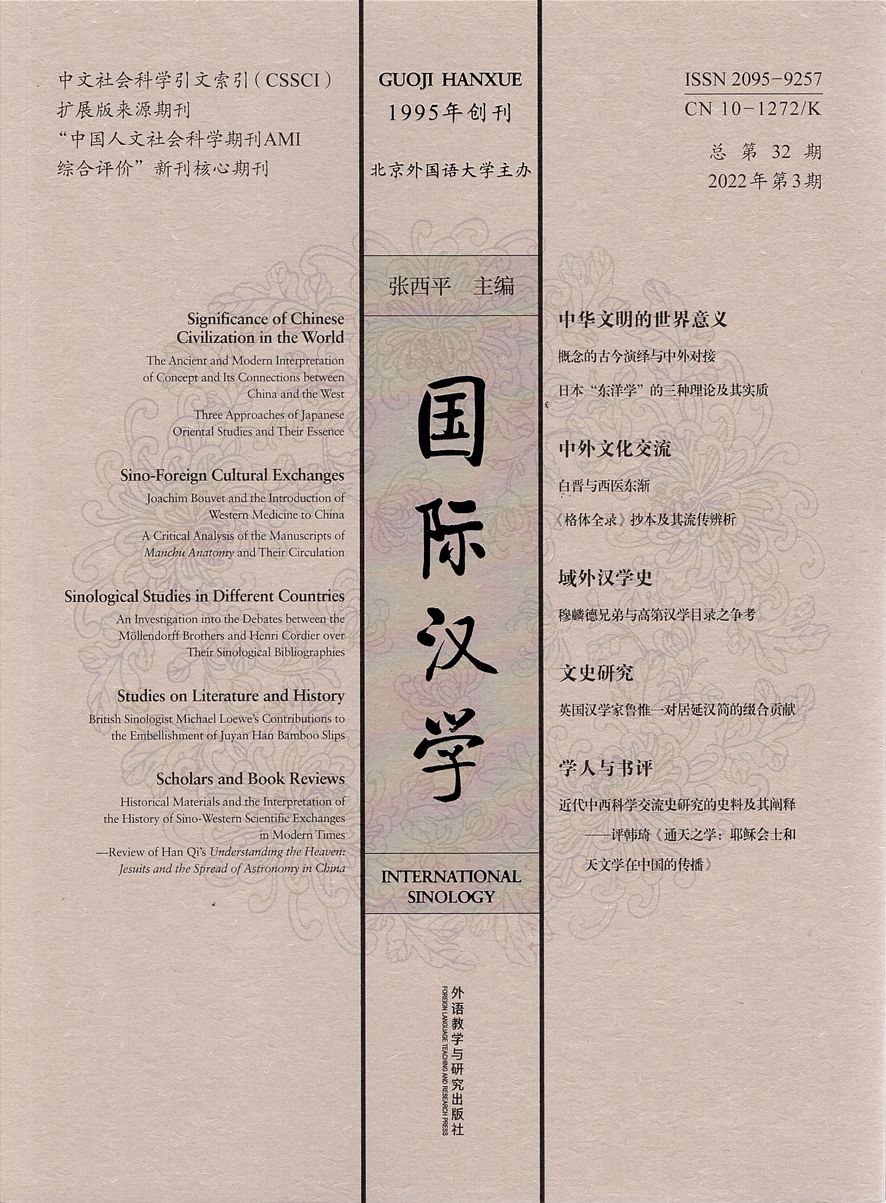 中文社会科学引文索引（CSSCI）
扩展版来源期刊
“中国人文社会科学期刊AMI
综合评价”新刊核心期刊
GUOJI HANXUE
1995年创刊
北京外国语大学主办
ISSN 2095-9257
CN 10-1272/K
总 第 32 期
2022年第3期
张西平 主编
国际汉学
INTERNATIONAL
SINOLOGY
Significance of Chinese
Civilization in the World
The Ancient and Modern Interpretation
of Concept and Its Connections between
China and the West
Three Approaches of Japanese
Oriental Studies and Their Essence
Sino-Foreign Cultural Exchanges
Joachim Bouvet and the Introduction of
Western Medicine to China
A Critical Analysis of the Manuscripts of
Manchu Anatomy and Their Circulation
Sinological Studies in Different Countries
An Investigation into the Debates between the
Möllendorff Brothers and Henri Cordier over
Their Sinological Bibliographies
Studies on Literature and History
British Sinologist Michael Loewe's Contributions to
the Embellishment of Juyan Han Bamboo Slips
Scholars and Book Reviews
Historical Materials and the Interpretation of
the History of Sino-Western Scientific Exchanges
in Modern Times
—Review of Han Qi's Understanding the Heaven:
Jesuits and the Spread of Astronomy in China
中华文明的世界意义
概念的古今演绎与中外对接
日本“东洋学”的三种理论及其实质
中外文化交流
白晋与西医东渐
《格体全录》抄本及其流传辨析
域外汉学史
穆麟德兄弟与高第汉学目录之争考
文史研究
英国汉学家鲁惟一对居延汉简的缀合贡献
学人与书评
近代中西科学交流史研究的史料及其阐释
——评韩琦《通天之学：耶稣会士和
天文学在中国的传播》
外语教学与研究出版社
FOREIGN LANGUAGE TEACHING AND RESEARCH PRESS